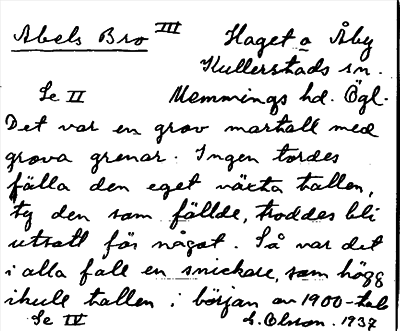 Abels Bro III Haget a Åby
Kullerstads sn.
Se II Memmings hd. Ögl.
Det var en grov martall med
grova grenar. Ingen tordes
fälla den eget växta tallen,
ty den som fällde, troddes bli
utsatt för något. Så var det
i alla fall en snickare, som högg
ikull tallen i början av 1900-tal
Se IV L. Olsson. 1937